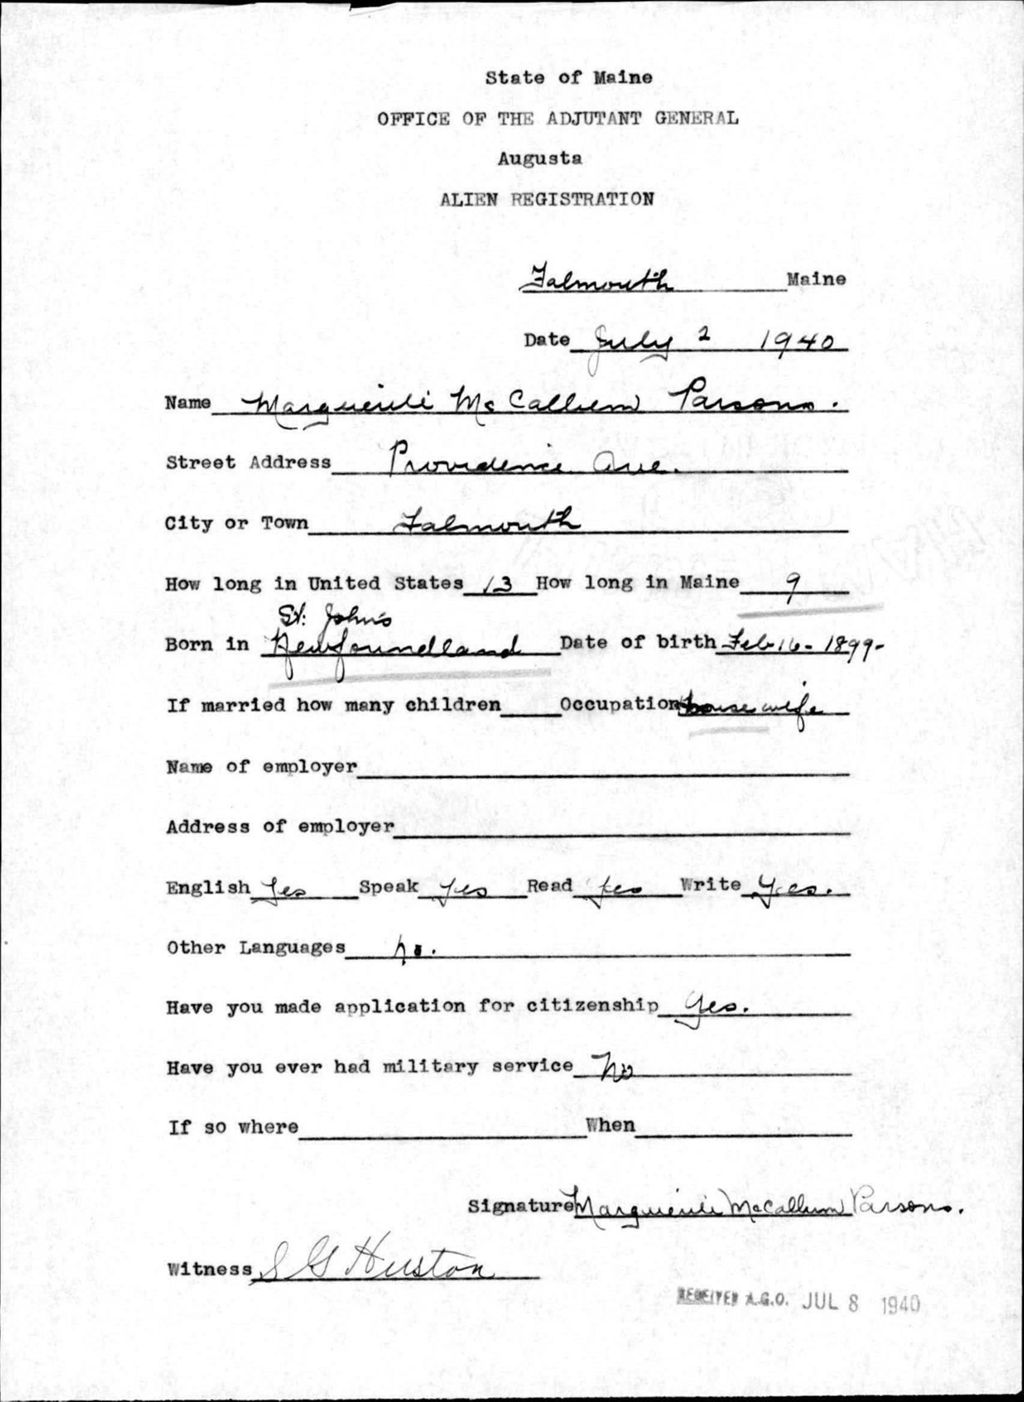 State of Maine
OFFICE OF THE ADJUTANT GENERAL
Augusta
ALIEN REGISTRATION
Falmouth Maine
Date July 2 1940
Name Marguerite McCallum Parsons.
Street Address Providence Ave.
City or Town Falmouth
How long in United States 13 How long in Maine 9
St. John's
Born in Newfoundland Date of birth Feb 16 - 1899 -
If married how many children Occupation housewife
Name of employer
Address of employer
English Yes Speak yes Read yes Write Yes.
Other Languages no.
Have you made application for citizenship Yes.
Have you ever had military service No
If so where When
Signature Marguerite McCallum Parsons.
Witness S G Huston
RECEIVED A.G.O. JUL 8 1940